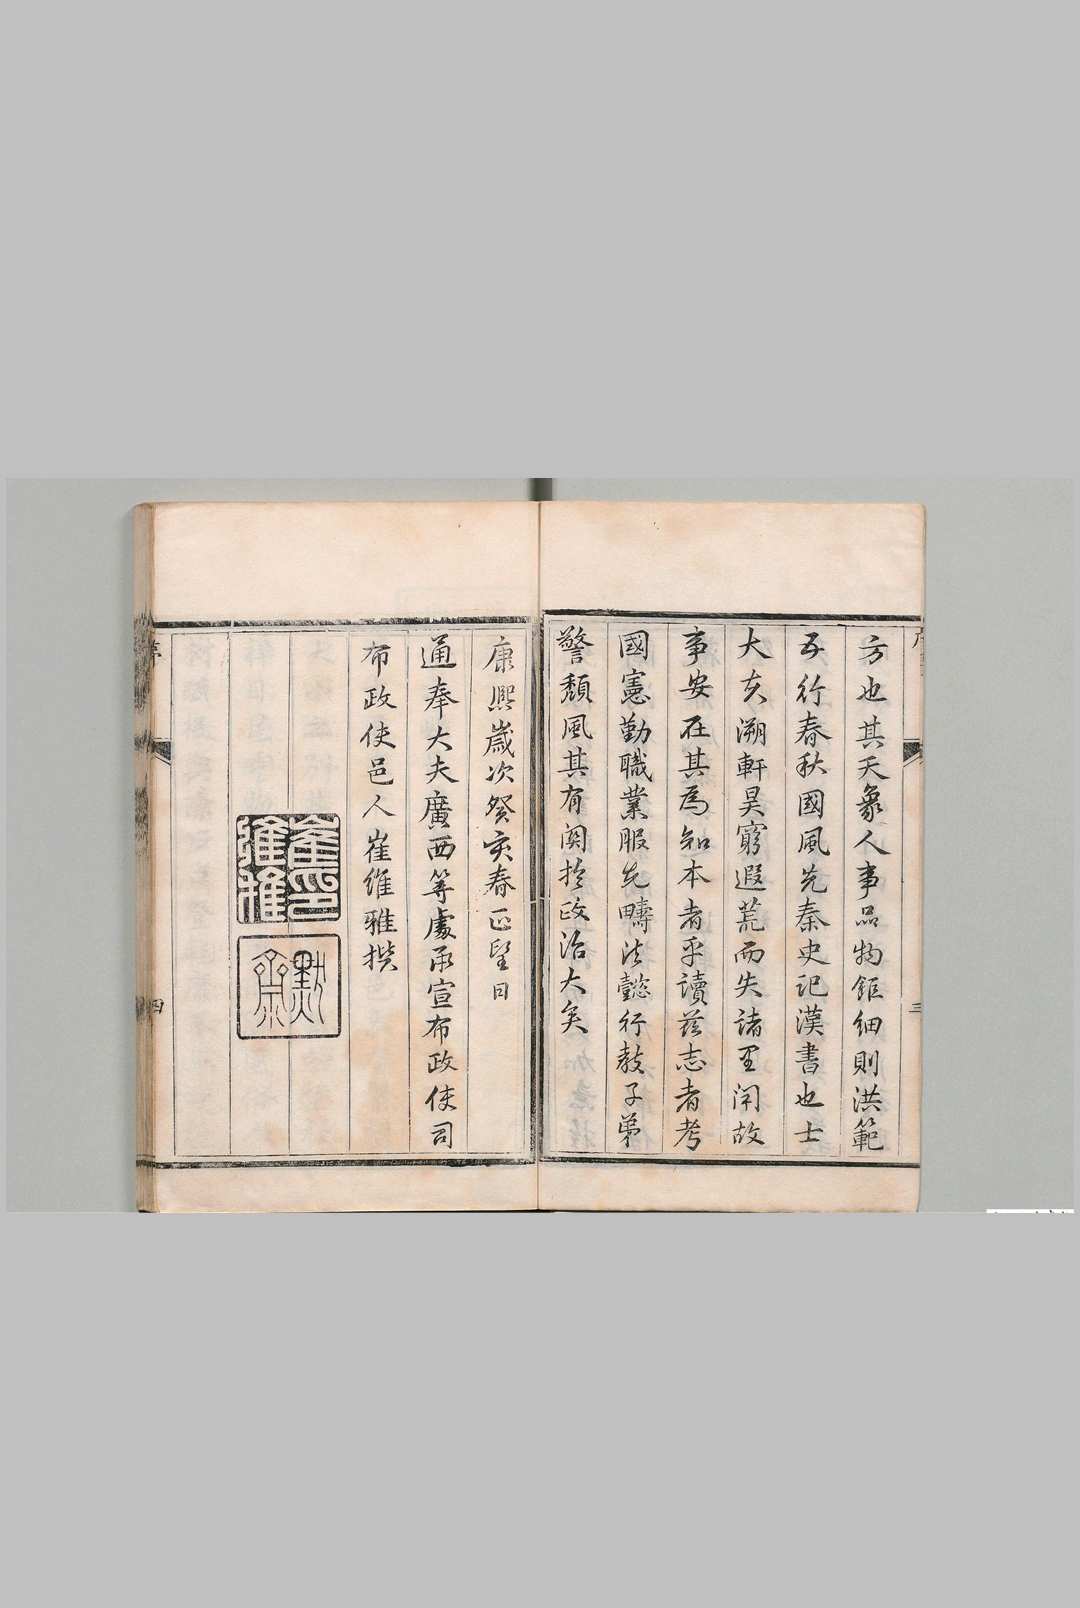 方也其天象人事品物鉅細則洪範
五行春秋國風先秦史記漢書也士
大夫溯軒昊窮遐荒而失諸里閈故
事安在其為知本者乎讀茲志者考
國憲勤職業服先疇法懿行教子弟
警頹風其有関扵政治大矣
康熙歲次癸亥春正望日
通奉大夫廣西等處承宣布政使司
布政使邑人崔維雅撰
崔印維雅
默齋
三
四